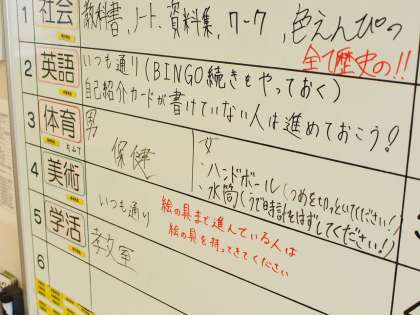 1 社会 教科書、ノート、資料集、ワーク、色えんぴつ
全て歴史の!!
2 英語 いつも通り(BINGO続きをやっておく)
自己紹介カードが書けていない人は進めておこう!
3 体育 男 保健
女
・ハンドボール(つめを切っといてください!)
・水筒(うで時計をはずしてください!)
4 美術 いつも通り
絵の具まで進んでいる人は
絵の具を持ってきてください
5 学活 教室
6